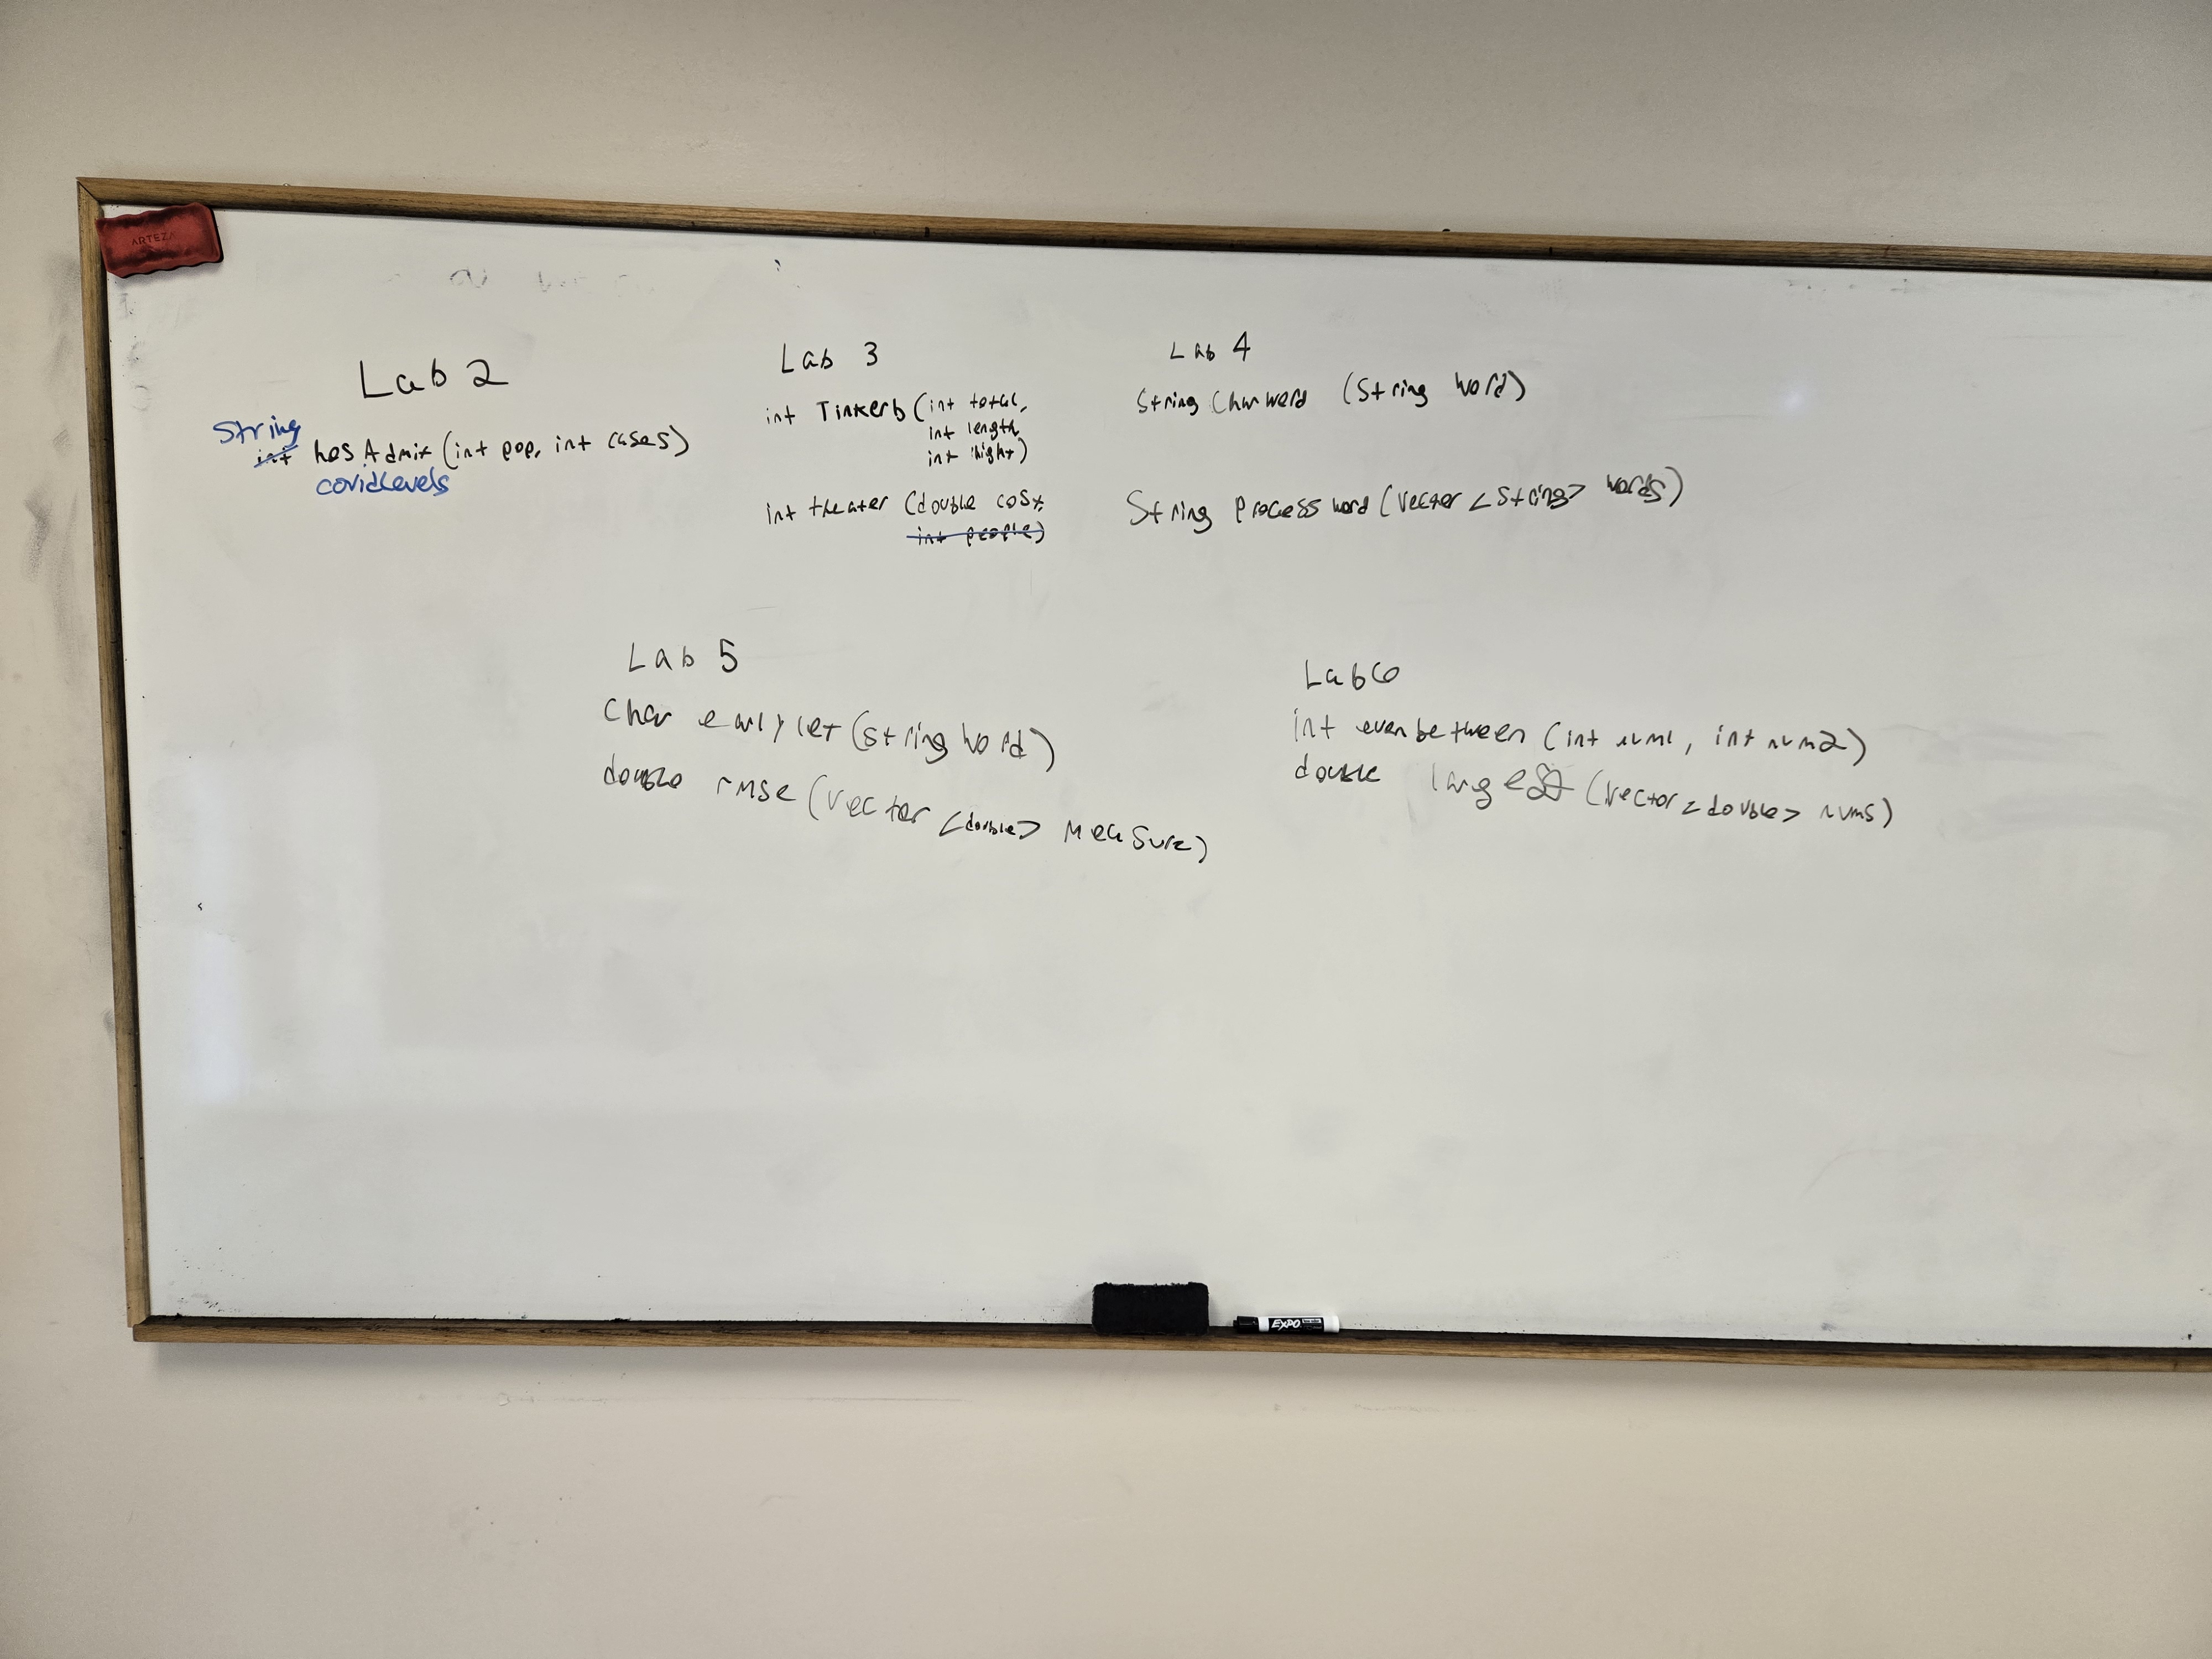 ARTEZA
Lab 2
String
int hosAdmit (int pop, int cases)
covidLevels
Lab 3
int Tinkerb (int total,
int length
int hight)
int theater (double cost,
int people)
Lab 4
String Charword (String word)
String Process word (vector <String> words)
Lab 5
Char earlylet (string word)
double rmse (vector <double> measure)
Lab 6
int evenbetween (int num1, int num2)
double largest (vector <double> nums)
EXPO